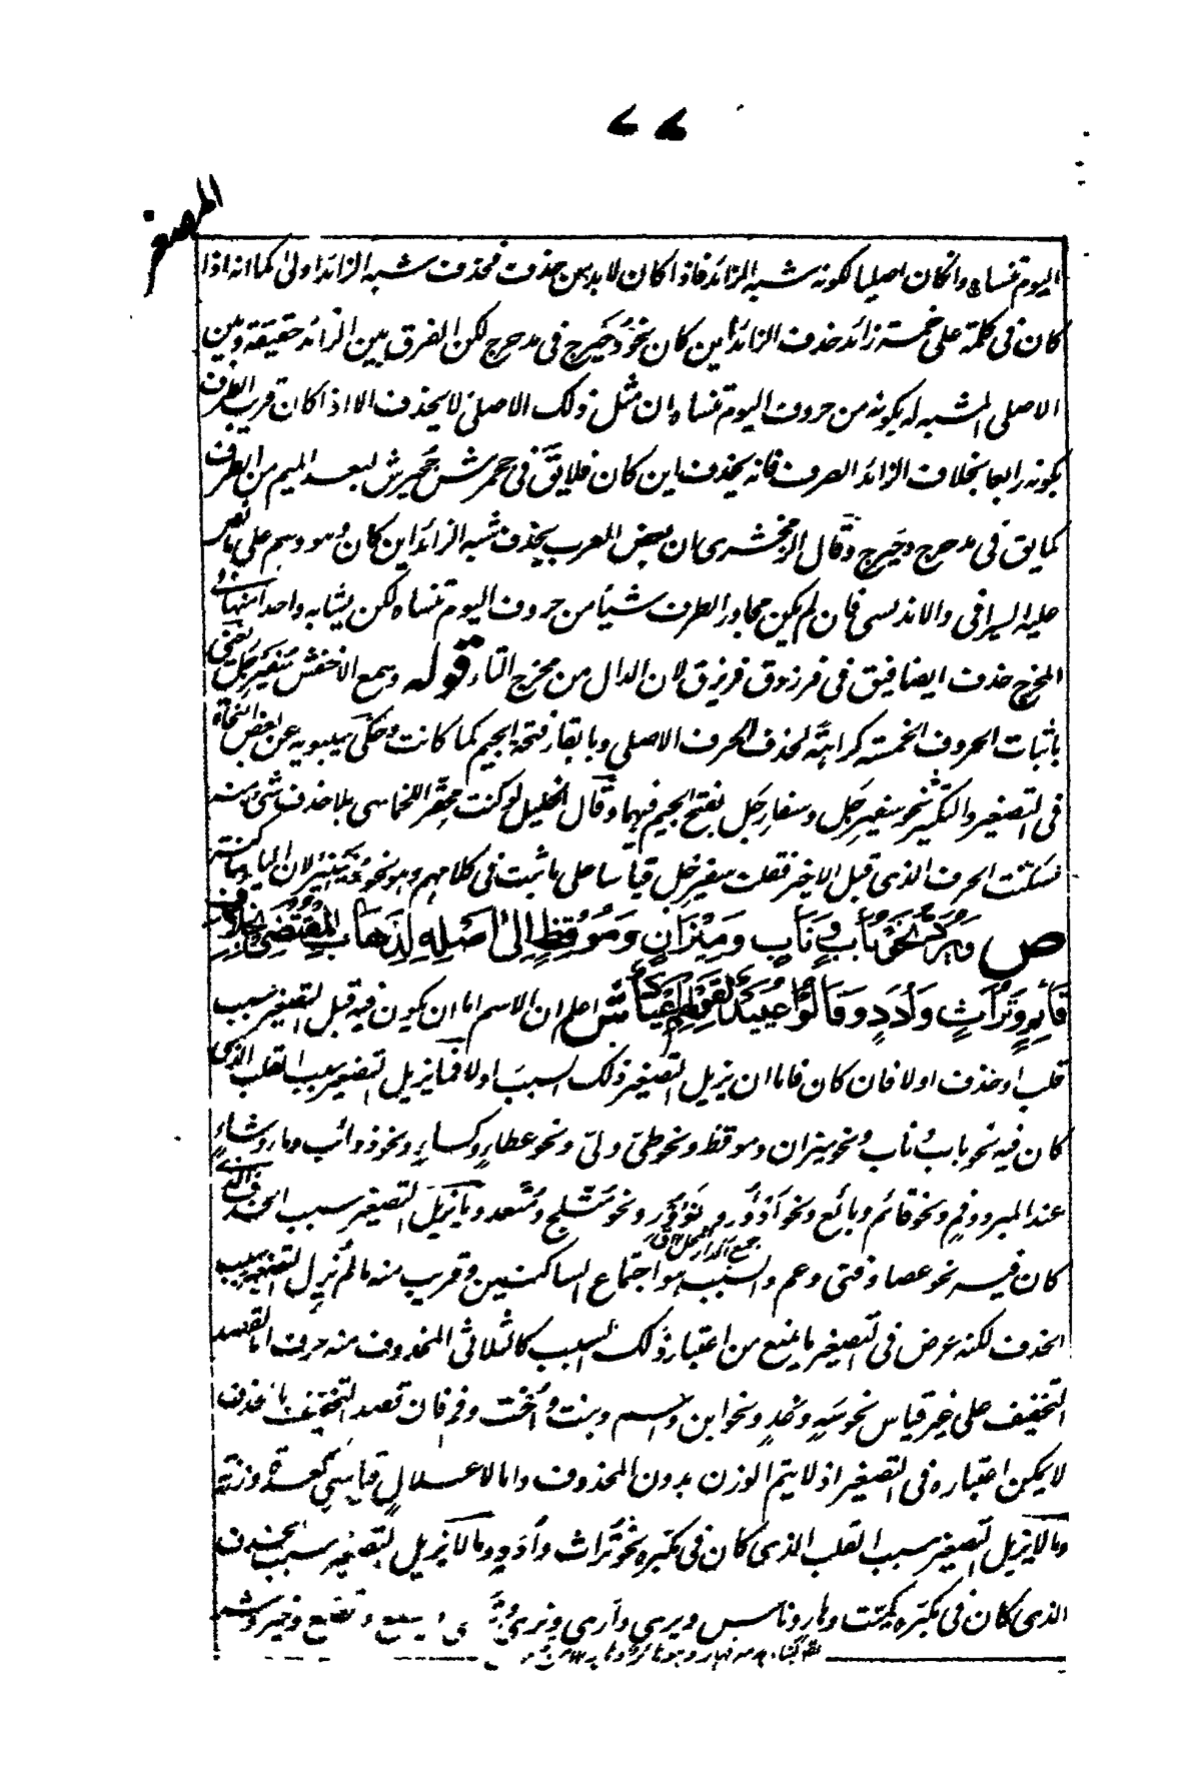 ٧٧
المصغر
اليوم تنساه وان كان اصليا لكونه شبه الزائد فاذا كان لا بد من حذف فحذف شبه الزائد اولى كما انه اذا
كان فى كلمة على خمسة زائد حذف الزائد اين كان نحو دحيرج فى مدحرج لكن الفرق بين الزائد حقيقة وبين
الاصلى المشبه له بكونه من حروف اليوم تنساه ان مثل ذلك الاصلى لا يحذف الا اذا كان قريب الطرف
بكونه رابعا بخلاف الزائد الصرف فانه يحذف اين كان فلا يق فى جحمرش جحيرش لبعد الميم من الطرف
كما يق فى مدحرج دحيرج وقال الزمخشرى ان بعض العرب يحذف شبه الزائد اين كان وهو وهم على ما نص
عليه السيرافى والاندلسى فان لم يكن مجاور الطرف شيئا من حروف اليوم تنساه لكن يشابه واحدا منها فى
المخرج حذف ايضا فيق فى فرزدق فريزق لان الدال من مخرج التاء قوله وسمع الاخفش سفيرجل يعنى
باثبات الحروف الخمسة كراهة لحذف الحرف الاصلى وبابقاء فتحة الجيم كما كانت وحكى سيبويه عن بعض النحاة
فى التصغير والتكسير نحو سفيرجل وسفارجل بفتح الجيم فيهما وقال الخليل لو كنت محقرا للخماسى بلا حذف شئ منه
لسكنت الحرف الذى قبل الاخير فقلت سفيرجل قياسا على ما ثبت فى كلامهم وهو نحو دنينير لان الياء ساكنة
ص ويرد نحو باب وناب وميزان وموقظ الى اصله لذهاب المقتضى بخلاف
قائم وتراث وادد وقالوا عييد لقولهم اعياد ش اعلم ان الاسم اما ان يكون فيه قبل التصغير سبب
قلب او حذف اولا فان كان فاما ان يزيل التصغير ذلك السبب اولا فما يزيل التصغير سبب القلب الذى
كان فيه نحو باب وناب ونحو ميزان وموقظ ونحو طى ولى ونحو عطاء وكساء ونحو ذوائب وماء وشاء
عند المبرد وفم ونحو قائم وبائع ونحو ادؤر ونؤور ونحو متلج ومتعد وما يزيل التصغير سبب الحذف الذى
كان فيه نحو عصا وفتى وعم والسبب هو اجتماع الساكنين وقريب منه ما لم يزل التصغير سبب
الحذف لكنه عرض فى التصغير ما يمنع من اعتبار ذلك السبب كالثلاثى المحذوف منه حرف اما لقصد
التخفيف على غير قياس نحو سه وغد ونحو ابن واسم وبنت واخت وفم فان قصد التخفيف بالحذف
لا يمكن اعتباره فى التصغير اذ لا يتم الوزن بدون المحذوف واما لاعلال قياسى كعدة وزنة
وما لا يزيل التصغير سبب القلب الذى كان فى مكبره نحو تراث وادد وما لا يزيل التصغير سبب الحذف
الذى كان فى مكبره كميت وهار وناس ويرى وارى ونرى